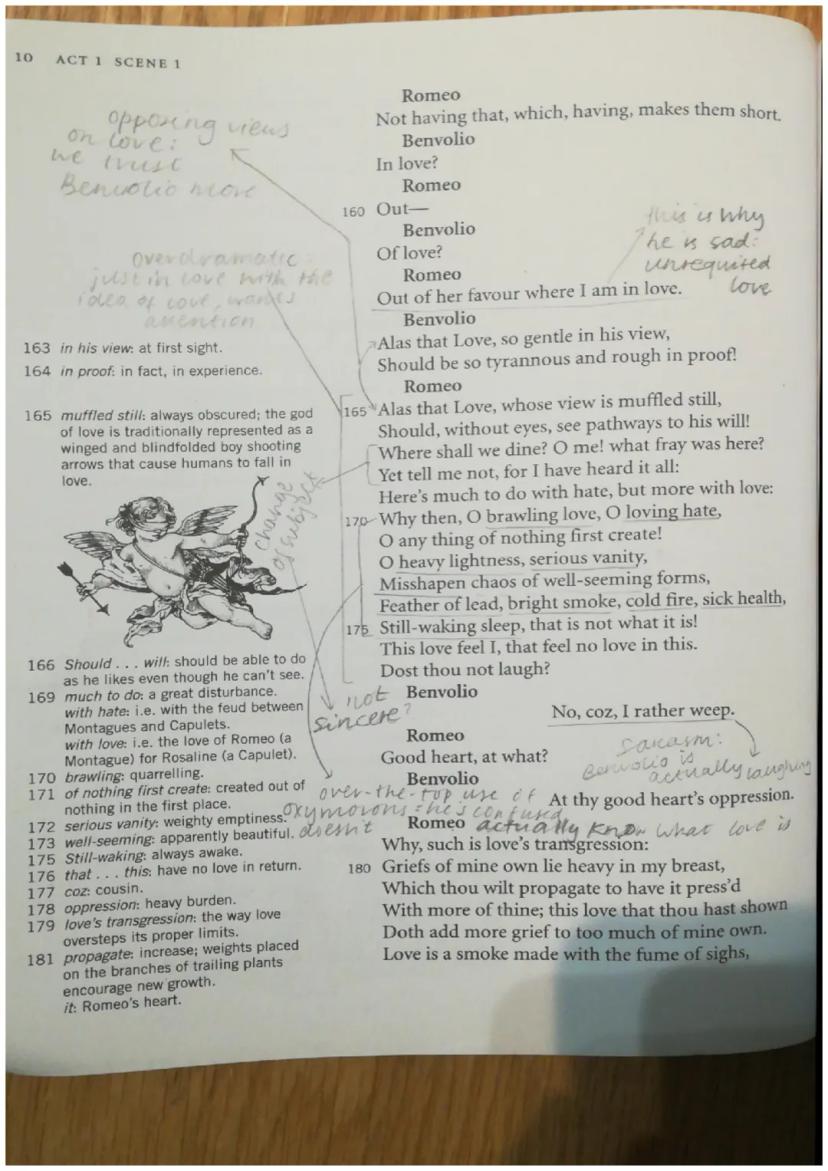 10 ACT 1 SCENE 1
opposing views
on love:
we trust
Benvolio more
Overdramatic:
just in love with the
idea of love, wants
attention
163 in his view: at first sight.
164 in proof: in fact, in experience.
165 muffled still: always obscured; the god
of love is traditionally represented as a
winged and blindfolded boy shooting
arrows that cause humans to fall in
love.
change
of subject
166 Should . . . will: should be able to do
as he likes even though he can't see.
169 much to do: a great disturbance.
with hate: i.e. with the feud between
Montagues and Capulets.
with love: i.e. the love of Romeo (a
Montague) for Rosaline (a Capulet).
170 brawling: quarrelling.
171 of nothing first create: created out of
nothing in the first place.
172 serious vanity: weighty emptiness.
173 well-seeming: apparently beautiful.
175 Still-waking: always awake.
176 that . . . this: have no love in return.
177 coz: cousin.
178 oppression: heavy burden.
179 love's transgression: the way love
oversteps its proper limits.
181 propagate: increase; weights placed
on the branches of trailing plants
encourage new growth.
it: Romeo's heart.
Romeo
Not having that, which, having, makes them short.
Benvolio
In love?
Romeo
160 Out—
Benvolio
Of love?
Romeo
Out of her favour where I am in love.
this is why
he is sad:
unrequited
love
Benvolio
Alas that Love, so gentle in his view,
Should be so tyrannous and rough in proof!
Romeo
165 Alas that Love, whose view is muffled still,
Should, without eyes, see pathways to his will!
Where shall we dine? O me! what fray was here?
Yet tell me not, for I have heard it all:
Here's much to do with hate, but more with love:
170 Why then, O brawling love, O loving hate,
O any thing of nothing first create!
O heavy lightness, serious vanity,
Misshapen chaos of well-seeming forms,
Feather of lead, bright smoke, cold fire, sick health,
175 Still-waking sleep, that is not what it is!
This love feel I, that feel no love in this.
Dost thou not laugh?
not
sincere?
Benvolio
No, coz, I rather weep.
sarcasm:
Benvolio is
actually laughing
Romeo
Good heart, at what?
Benvolio
At thy good heart's oppression.
over-the-top use of
oxymorons = he's confused
doesn't actually know what love is
Romeo
Why, such is love's transgression:
180 Griefs of mine own lie heavy in my breast,
Which thou wilt propagate to have it press'd
With more of thine; this love that thou hast shown
Doth add more grief to too much of mine own.
Love is a smoke made with the fume of sighs,